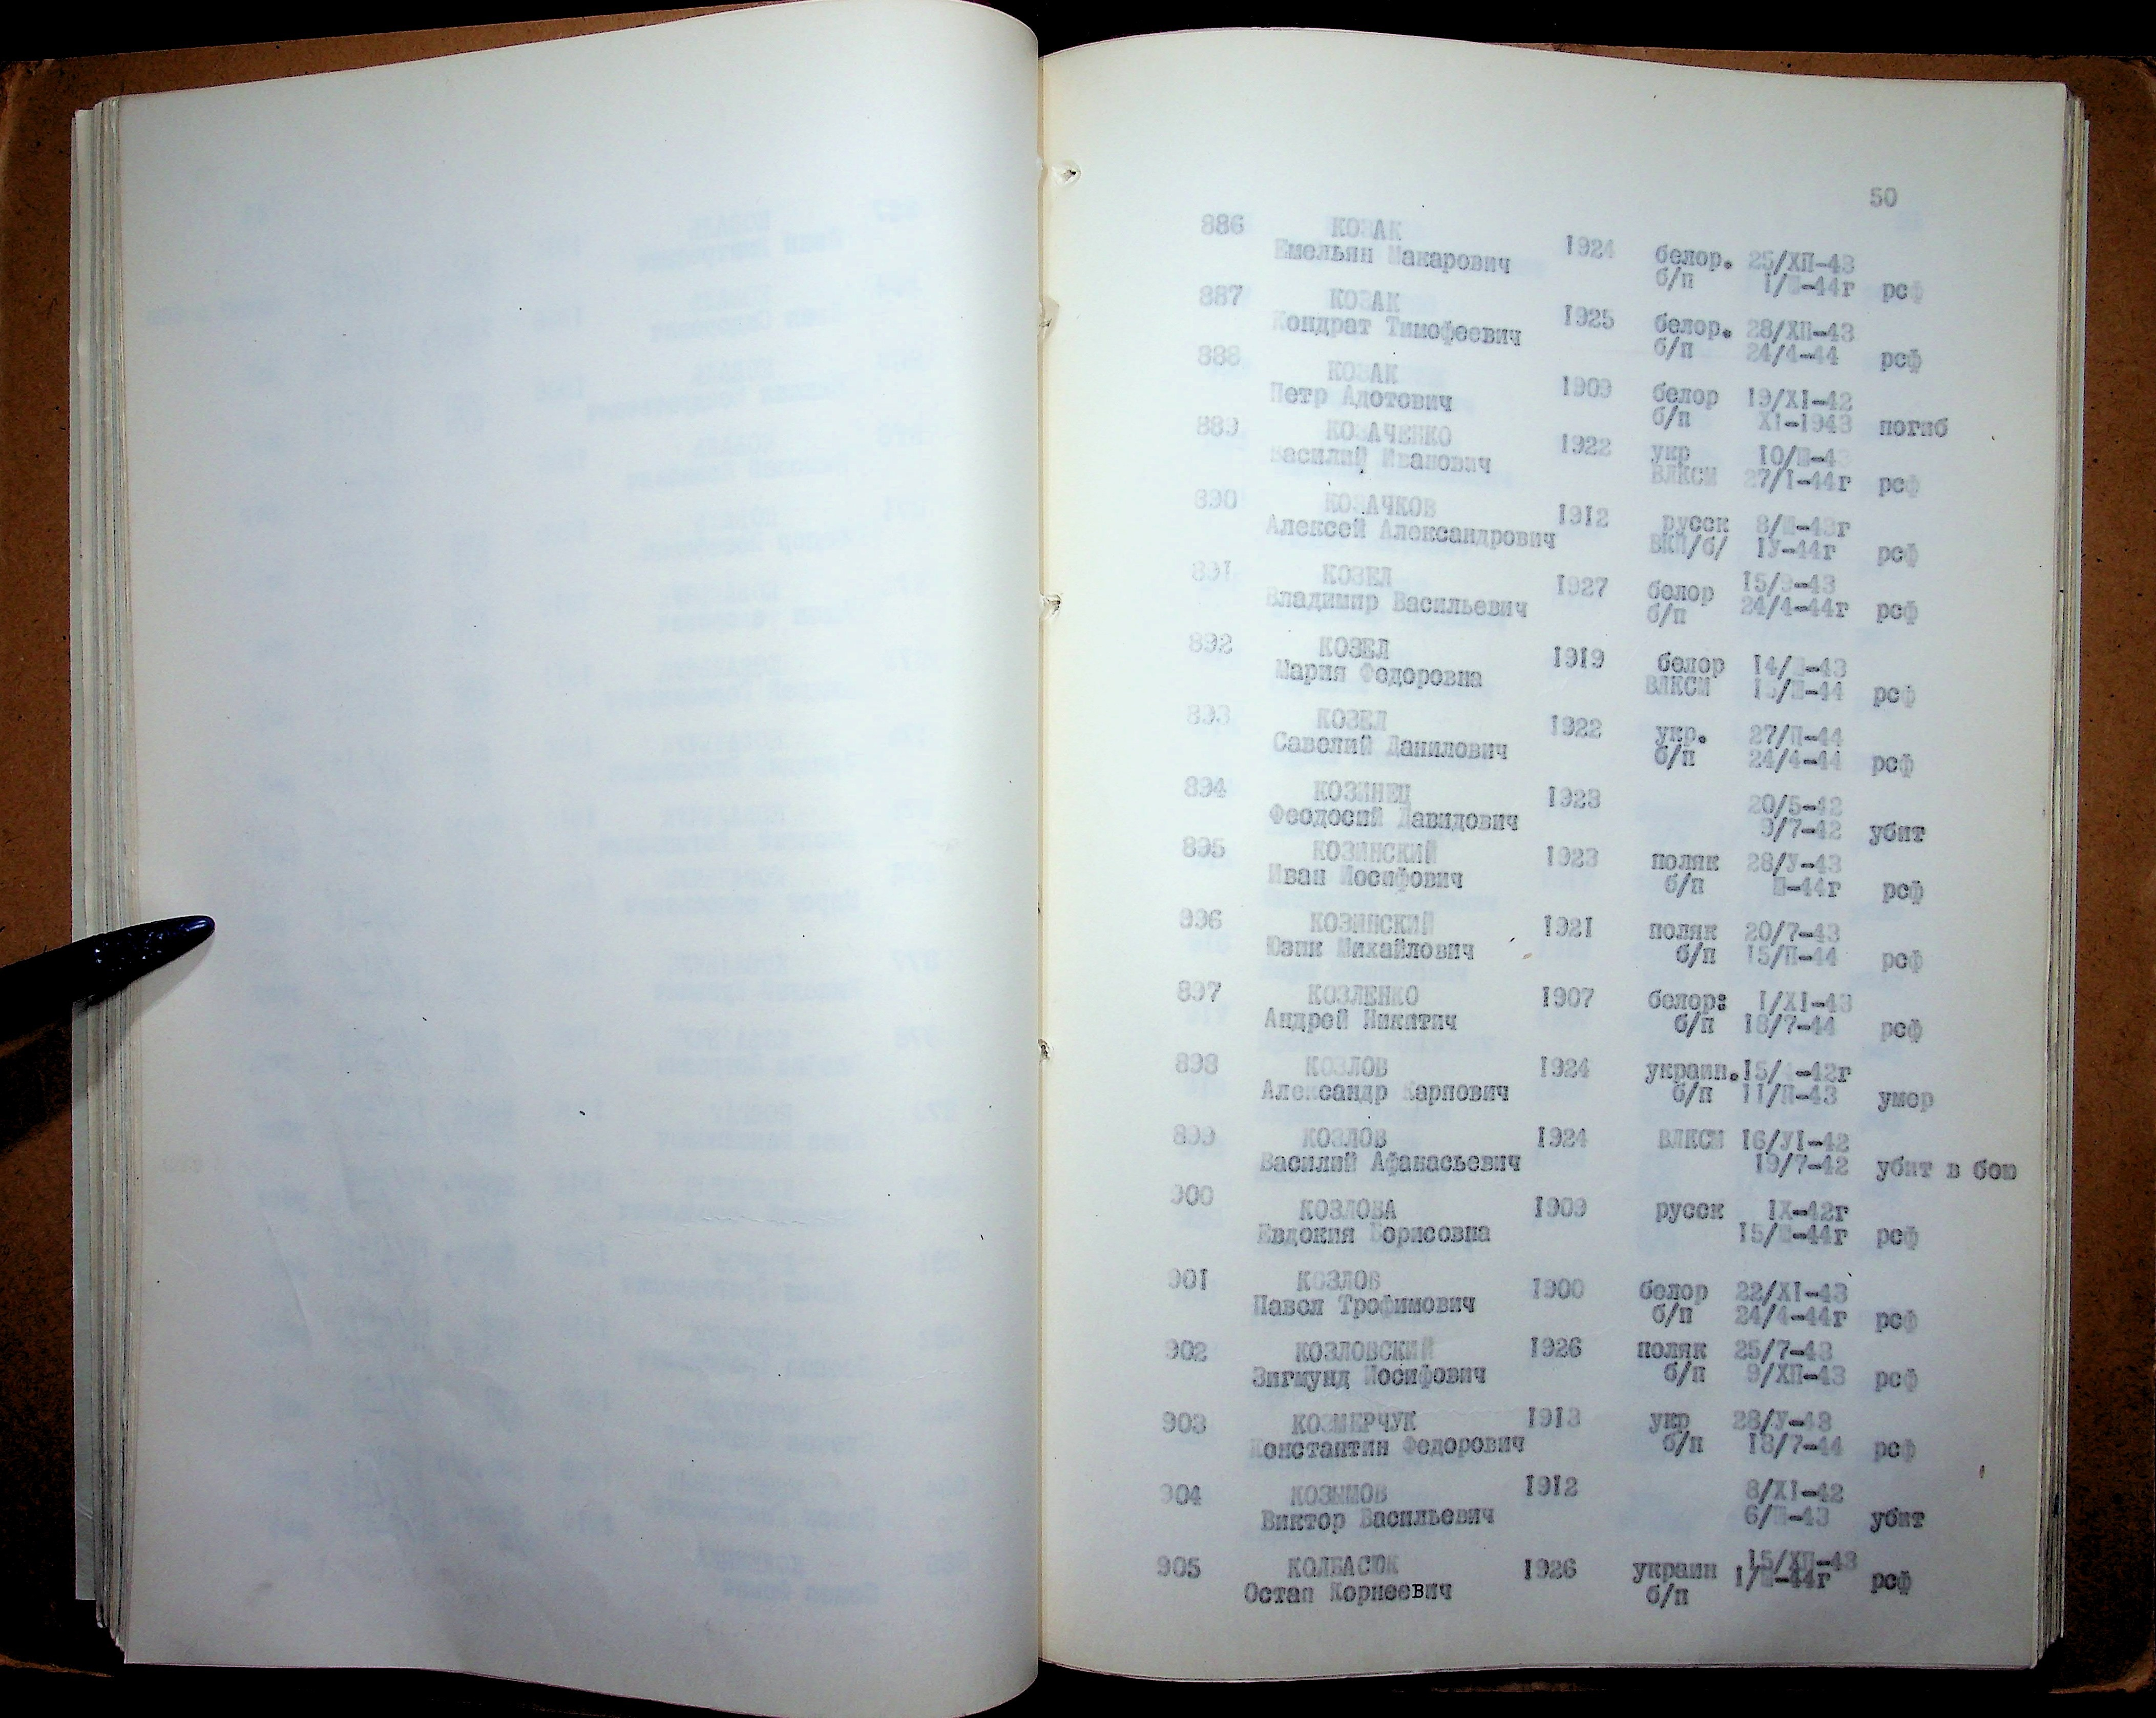 50
886 КОЗАК
Емельян Макарович 1924 белор. 25/ХП-43
б/п 1/Ш-44г рсф
887 КОЗАК
Кондрат Тимофеевич 1925 белор. 28/ХП-43
б/п 24/4-44 рсф
888 КОЗАК
Петр Адотович 1909 белор 19/XI-42
б/п XI-1943 погиб
889 КОЗАЧЕНКО
Василий Иванович 1922 укр 10/Ш-43
ВЛКСМ 27/I-44г рсф
890 КОЗАЧКОВ
Алексей Александрович 1912 русск 8/Ш-43г
ВКП/б/ IУ-44г рсф
891 КОЗЕЛ
Владимир Васильевич 1927 белор 15/9-43
б/п 24/4-44г рсф
892 КОЗЕЛ
Мария Федоровна 1919 белор 14/ -43
ВЛКСМ 15/Ш-44 рсф
893 КОЗЕЛ
Савелий Данилович 1922 укр. 27/П-44
б/п 24/4-44 рсф
894 КОЗИНЕЦ 1923 20/5-42
Феодосий Давидович 9/7-42 убит
895 КОЗИНСКИЙ 1923 поляк 28/У-43
Иван Иосифович б/п Ш-44г рсф
996 КОЗИНСКИЙ 1921 поляк 20/7-43
Юзик Михайлович б/п 15/П-44 рсф
897 КОЗЛЕНКО 1907 белор: 1/XI-43
Андрей Никитич б/п 18/7-44 рсф
898 КОЗЛОВ 1924 украин. 15/ -42г
Александр Карпович б/п 11/П-43 умер
899 КОЗЛОВ 1924 ВЛКСМ 16/УI-42
Василий Афанасьевич 19/7-42 убит в бою
900 КОЗЛОВА 1909 русск IX-42г
Евдокия Борисовна 15/Ш-44г рсф
901 КОЗЛОВ 1900 белор 22/XI-43
Павел Трофимович б/п 24/4-44г рсф
902 КОЗЛОВСКИЙ 1926 поляк 25/7-43
Зигмунд Иосифович б/п 9/ХП-43 рсф
903 КОЗМЕРЧУК 1913 укр 28/У-43
Константин Федорович б/п 18/7-44 рсф
904 КОЗЫМОВ 1912 8/XI-42
Виктор Васильевич 6/Ш-43 убит
905 КОЛБАСЮК 1926 украин 15/ХП-43
Остап Корнеевич б/п 1/Ш-44г рсф